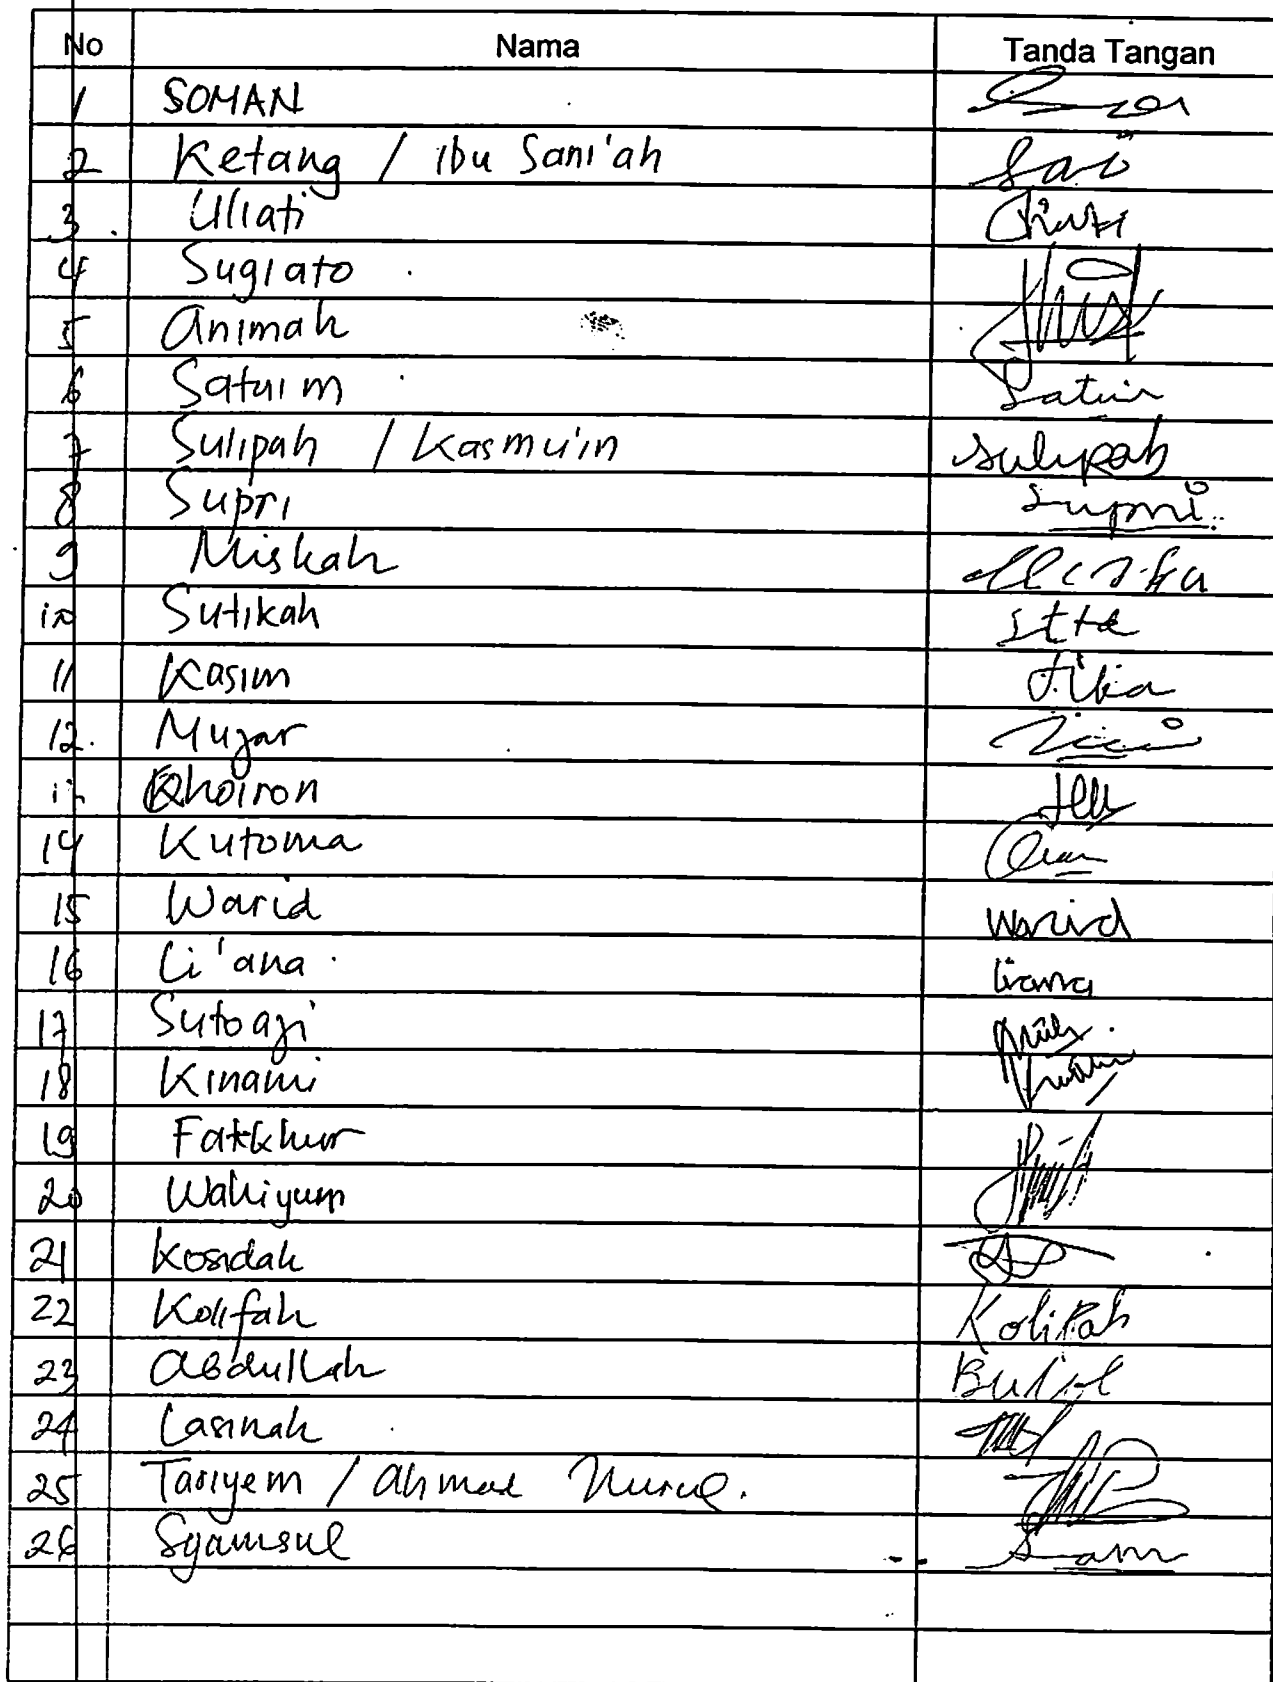 No Nama Tanda Tangan
1 SOMAN
2 Ketang / ibu Sani'ah
3. Uliati
4 Sugiato
5 Animah
6 Satuim Satuim
7 Sulipah / Kasmu'in Sulipah
8 Supri Supri
9 Miskah
10 Sutikah
11 Kasim
12. Mujar
13 Khoiron
14 Kutoma
15 Warid Warid
16 Li'ana liana
17 Sutoaji
18 Kinami
19 Fatkhur
20 Wahiyum
21 Kosidah
22 Kolifah Kolipah
23 Abdullah
24 Lasinah
25 Tasiyem / Ahmad Nurul.
26 Syamsul Sam